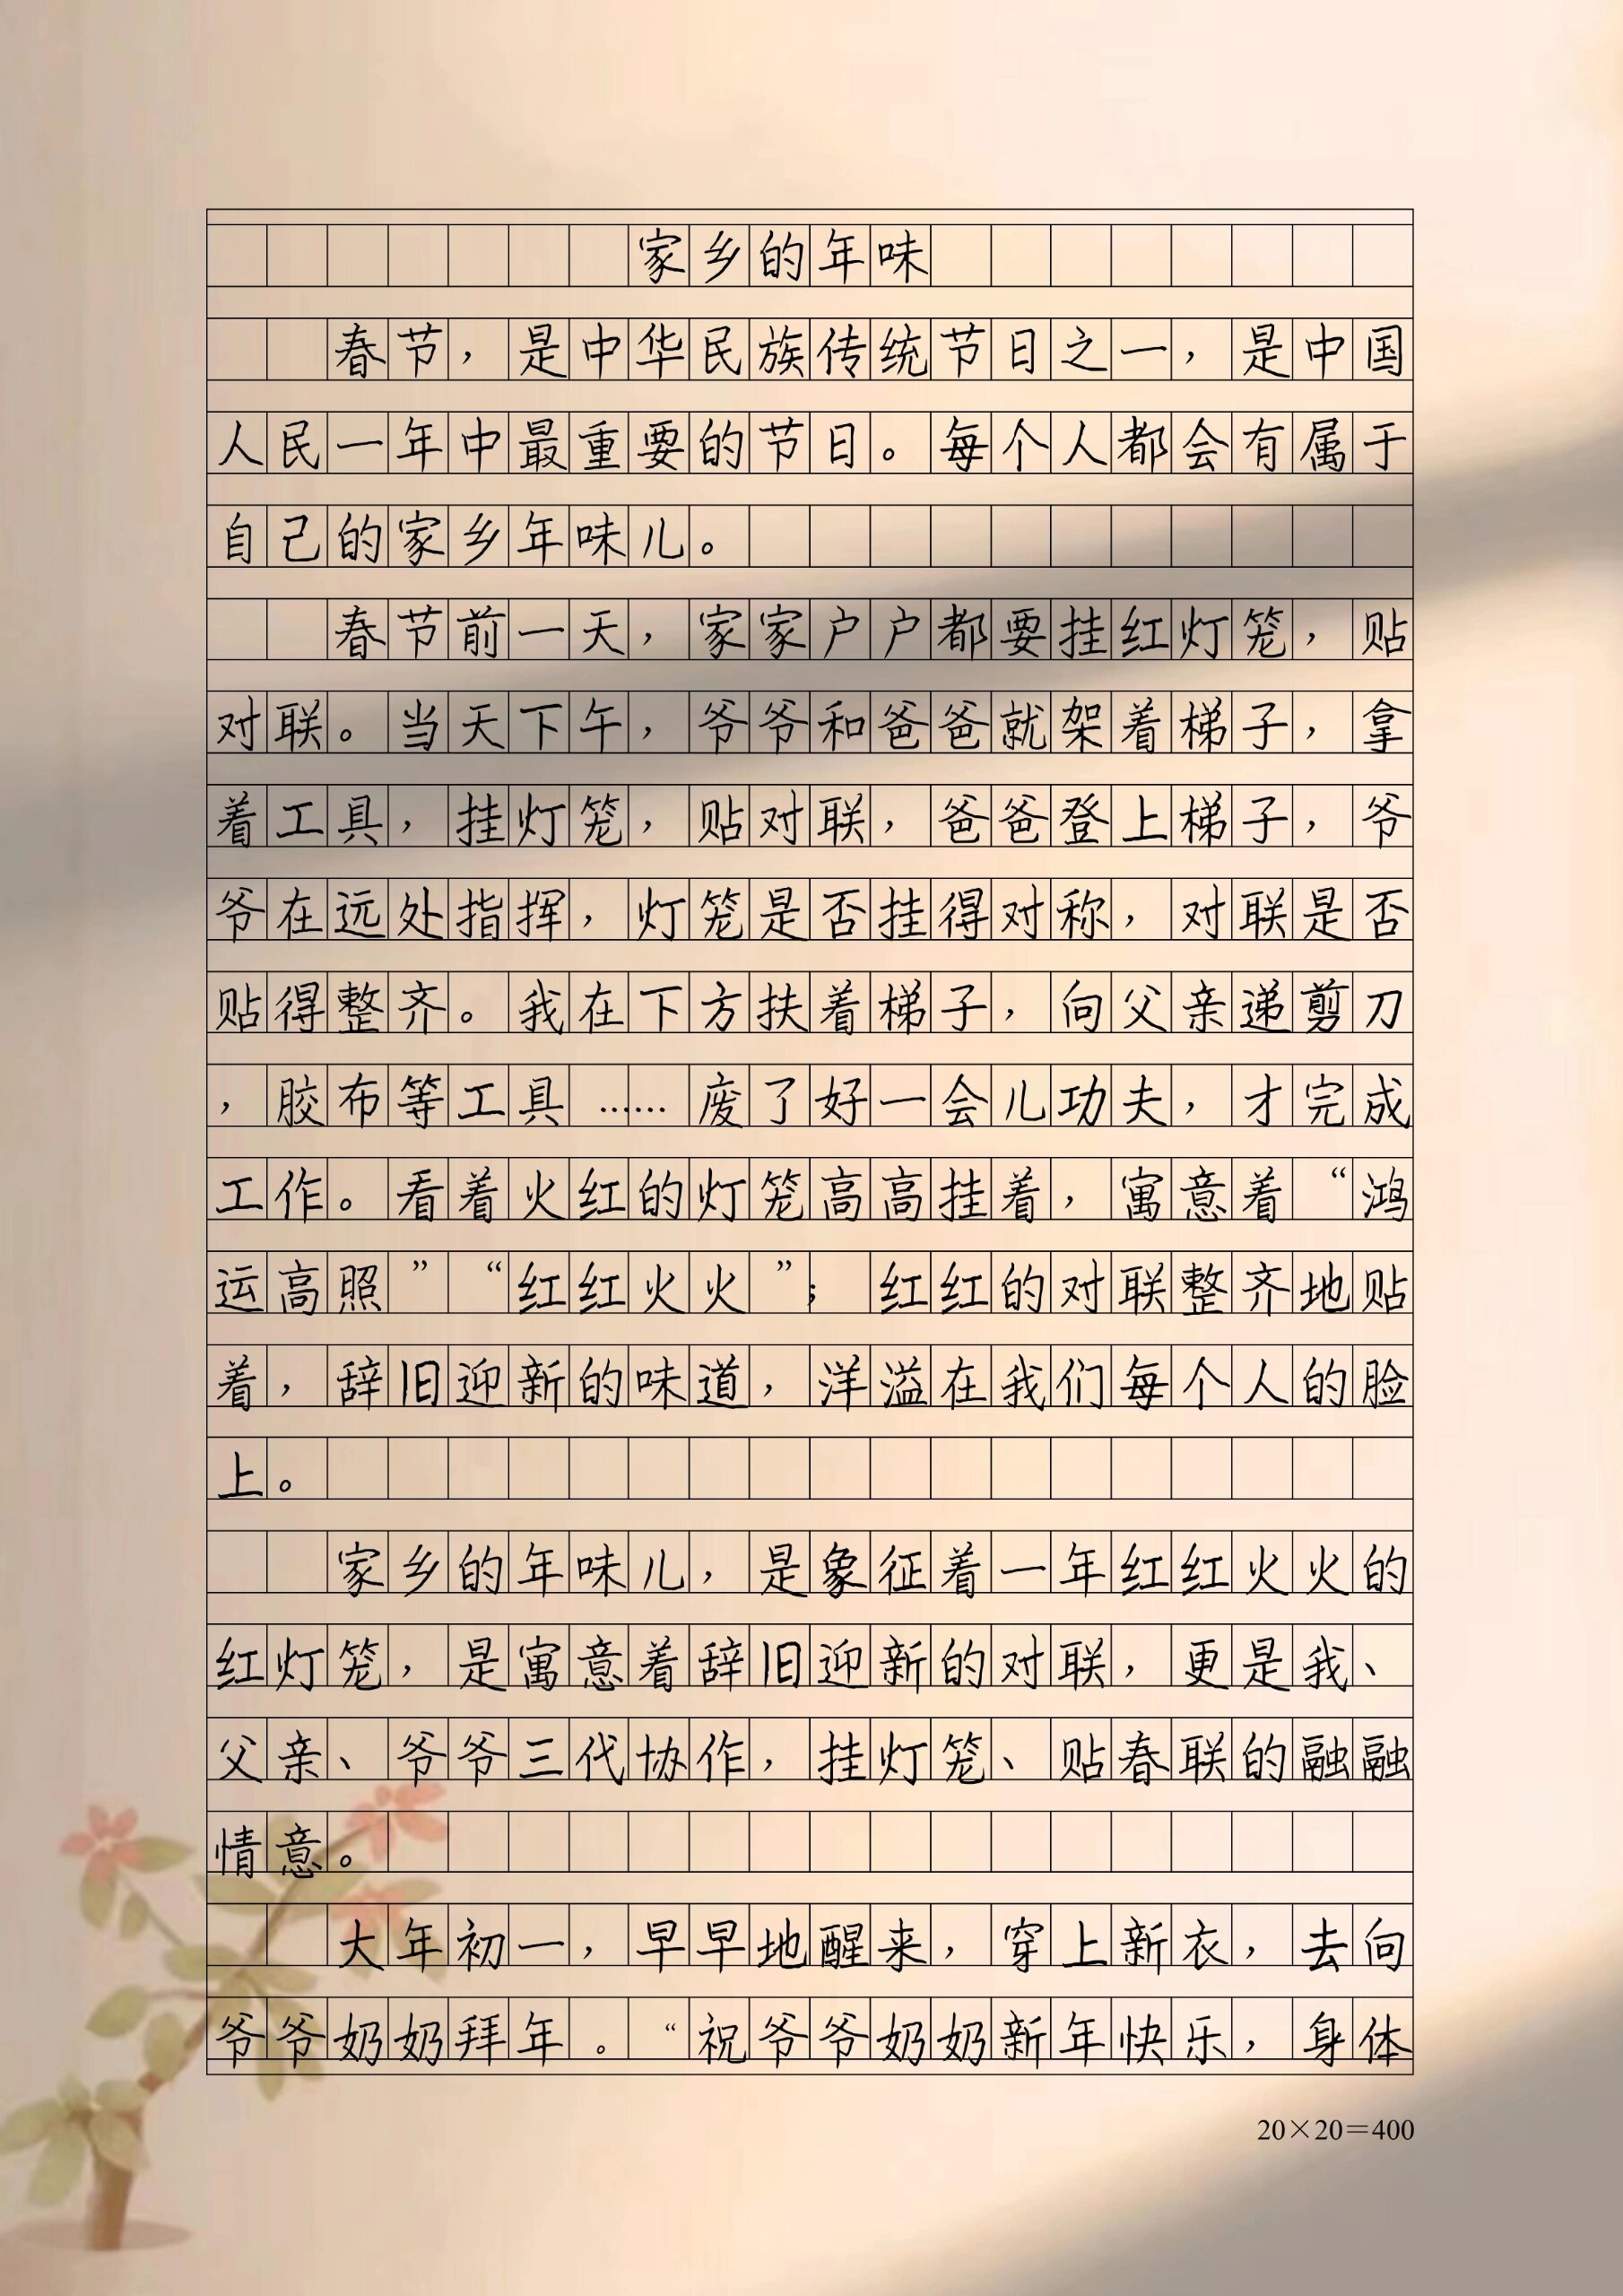 家乡的年味
春节，是中华民族传统节日之一，是中国
人民一年中最重要的节日。每个人都会有属于
自己的家乡年味儿。
春节前一天，家家户户都要挂红灯笼，贴
对联。当天下午，爷爷和爸爸就架着梯子，拿
着工具，挂灯笼，贴对联，爸爸登上梯子，爷
爷在远处指挥，灯笼是否挂得对称，对联是否
贴得整齐。我在下方扶着梯子，向父亲递剪刀
，胶布等工具……废了好一会儿功夫，才完成
工作。看着火红的灯笼高高挂着，寓意着“鸿
运高照”“红红火火”；红红的对联整齐地贴
着，辞旧迎新的味道，洋溢在我们每个人的脸
上。
家乡的年味儿，是象征着一年红红火火的
红灯笼，是寓意着辞旧迎新的对联，更是我、
父亲、爷爷三代协作，挂灯笼、贴春联的融融
情意。
大年初一，早早地醒来，穿上新衣，去向
爷爷奶奶拜年。“祝爷爷奶奶新年快乐，身体
20×20＝400